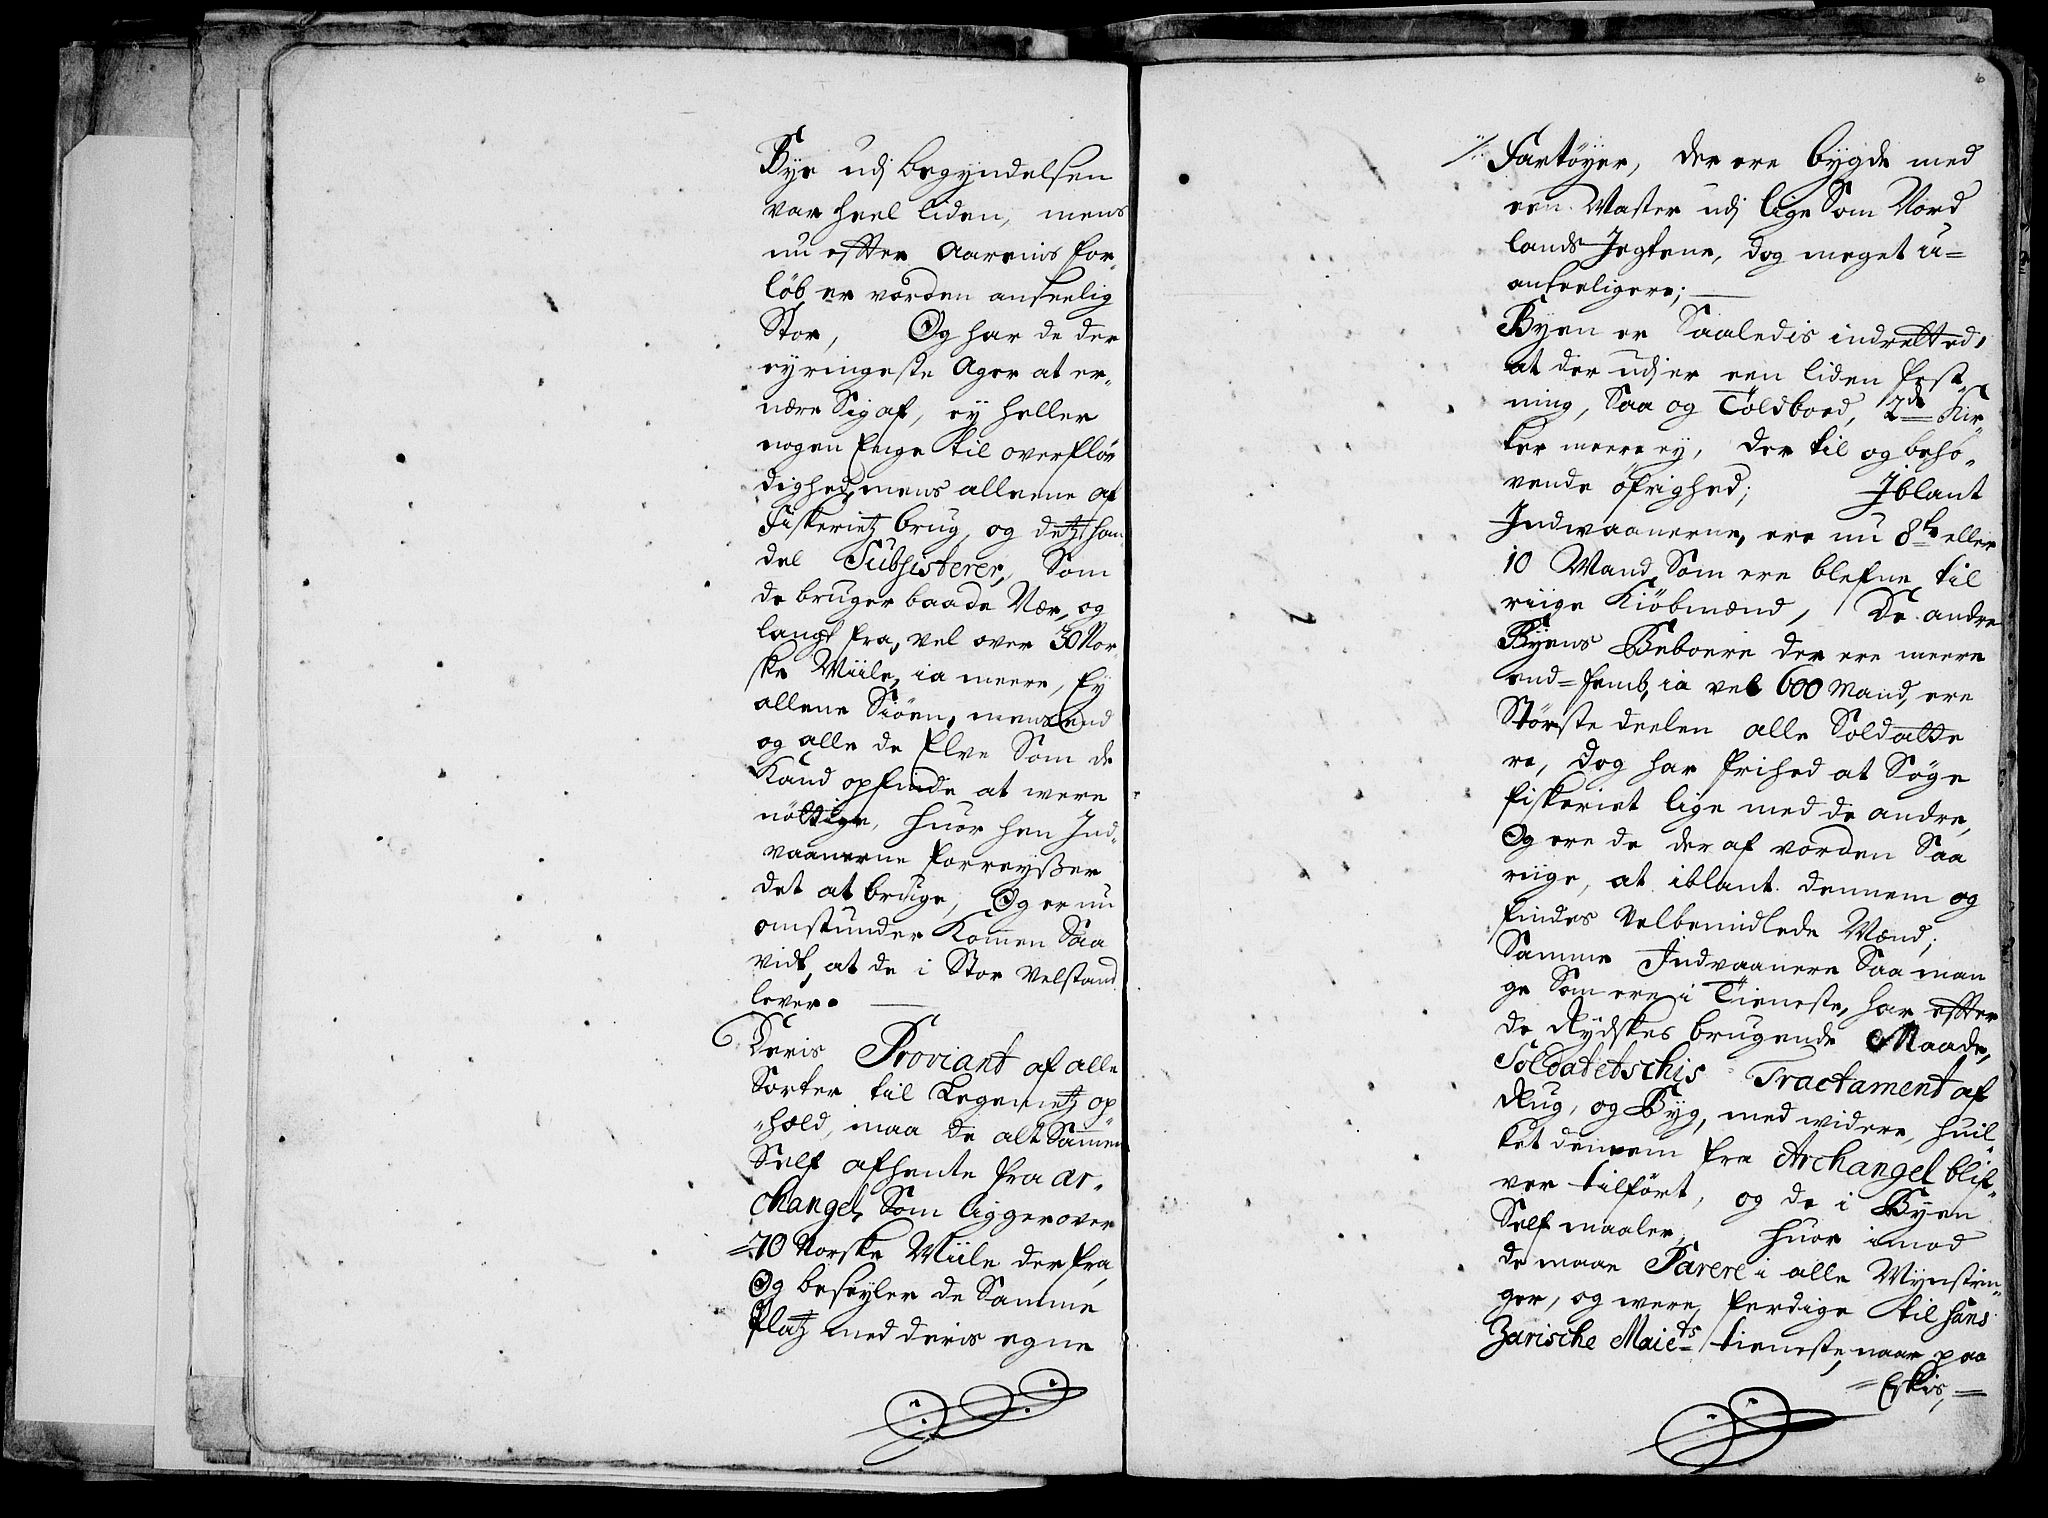 Bye udj begyndelsen
var heel liden, mens
nu efter Aarenis for„
løb, er vorden anseelig
Stor, Og har de der
eyringeste Ager at er„
nære Sig af, ey heller
nogen Enge til overflø„
dighed, mens alleene af
Fiskerietz brug, og detz han„
del Subsisterer, Som
de bruger baade Nær, og
langt fra, vel over 30 Nor„
ske Miile, ia meere, Ey
allene Siøen, mens end
og alle de Elve Som de
Kand opfinde at were
nöttige, huor hen Ind„
vaanerne forreyßer
det at bruge, Og er nu
omstunder Komen Saa
vidt, at de i Stor velstand
lever.
Deris Proviant af alle
Sorter til Legemetz op„
„hold, maa de alt Sammen
Self afhente fra Ar„
changel, Som ligger over
70 Norske Miile der fra,
Og beseyler de Samme
Platz med deris egne
6
Fartöyer, der ere bygde med
een Master udj lige Som Nord
lands Jegtene, dog meget u=
anseeligere;
Byen er Saaledis indretted,
at der udj er een liden Fest„
ning, Saa og Toldboed, 2de Kir„
ker meere ey, der til og beho„
vende öfrighed; Jblant
Indvaanerne, ere nu 8te eller
10 Mand, Som ere blefne til
riige Kiöbmænd, De andre
Byens Beboere der ere meere
end=femb, ia vel 600 Mand, ere
Störste deelen alle Soldatte
re, dog har frihed at Söge
fiskeriet lige med de andre,
Og ere de der af vorden Saa
riige, at iblant dennem og
findes Velbemidlede Mænd;
Samme Indvaanere Saa man
ge Som ere i Tieneste, har efter
de Rydskes brugende Maade,
Soldatetschis Tractament af
Rug, og Byg, med widere, huil„
ket dennem fra Archangel blif„
ver tilfört, og de i Byen
Self maaler, huor imod
de maae Parere i alle Mynstrin„
ger, og were ferdige til hans
Zarische Maiets tieneste, naar paa
Eskis,